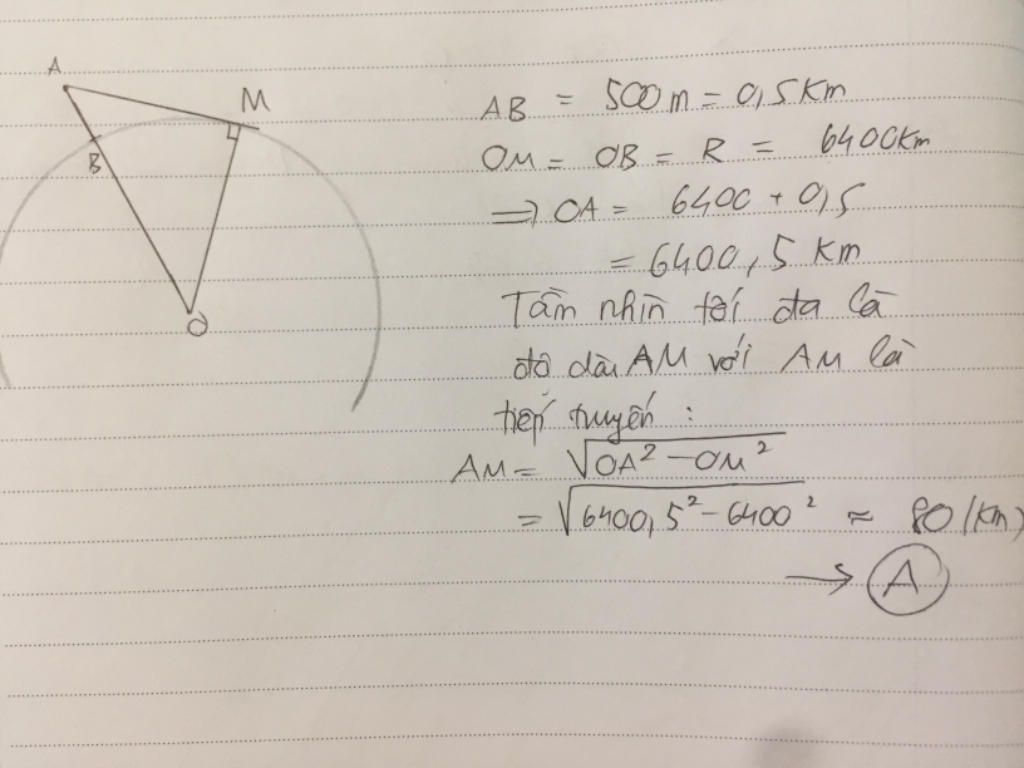 A
M
B
O
AB = 500m = 0,5 Km
OM = OB = R = 6400Km
=> OA = 6400 + 0,5
= 6400,5 Km
Tầm nhìn tối đa là
độ dài AM với AM là
tiếp tuyến :
AM = √OA² - OM²
= √6400,5² - 6400² ≈ 80 (Km)
→ A